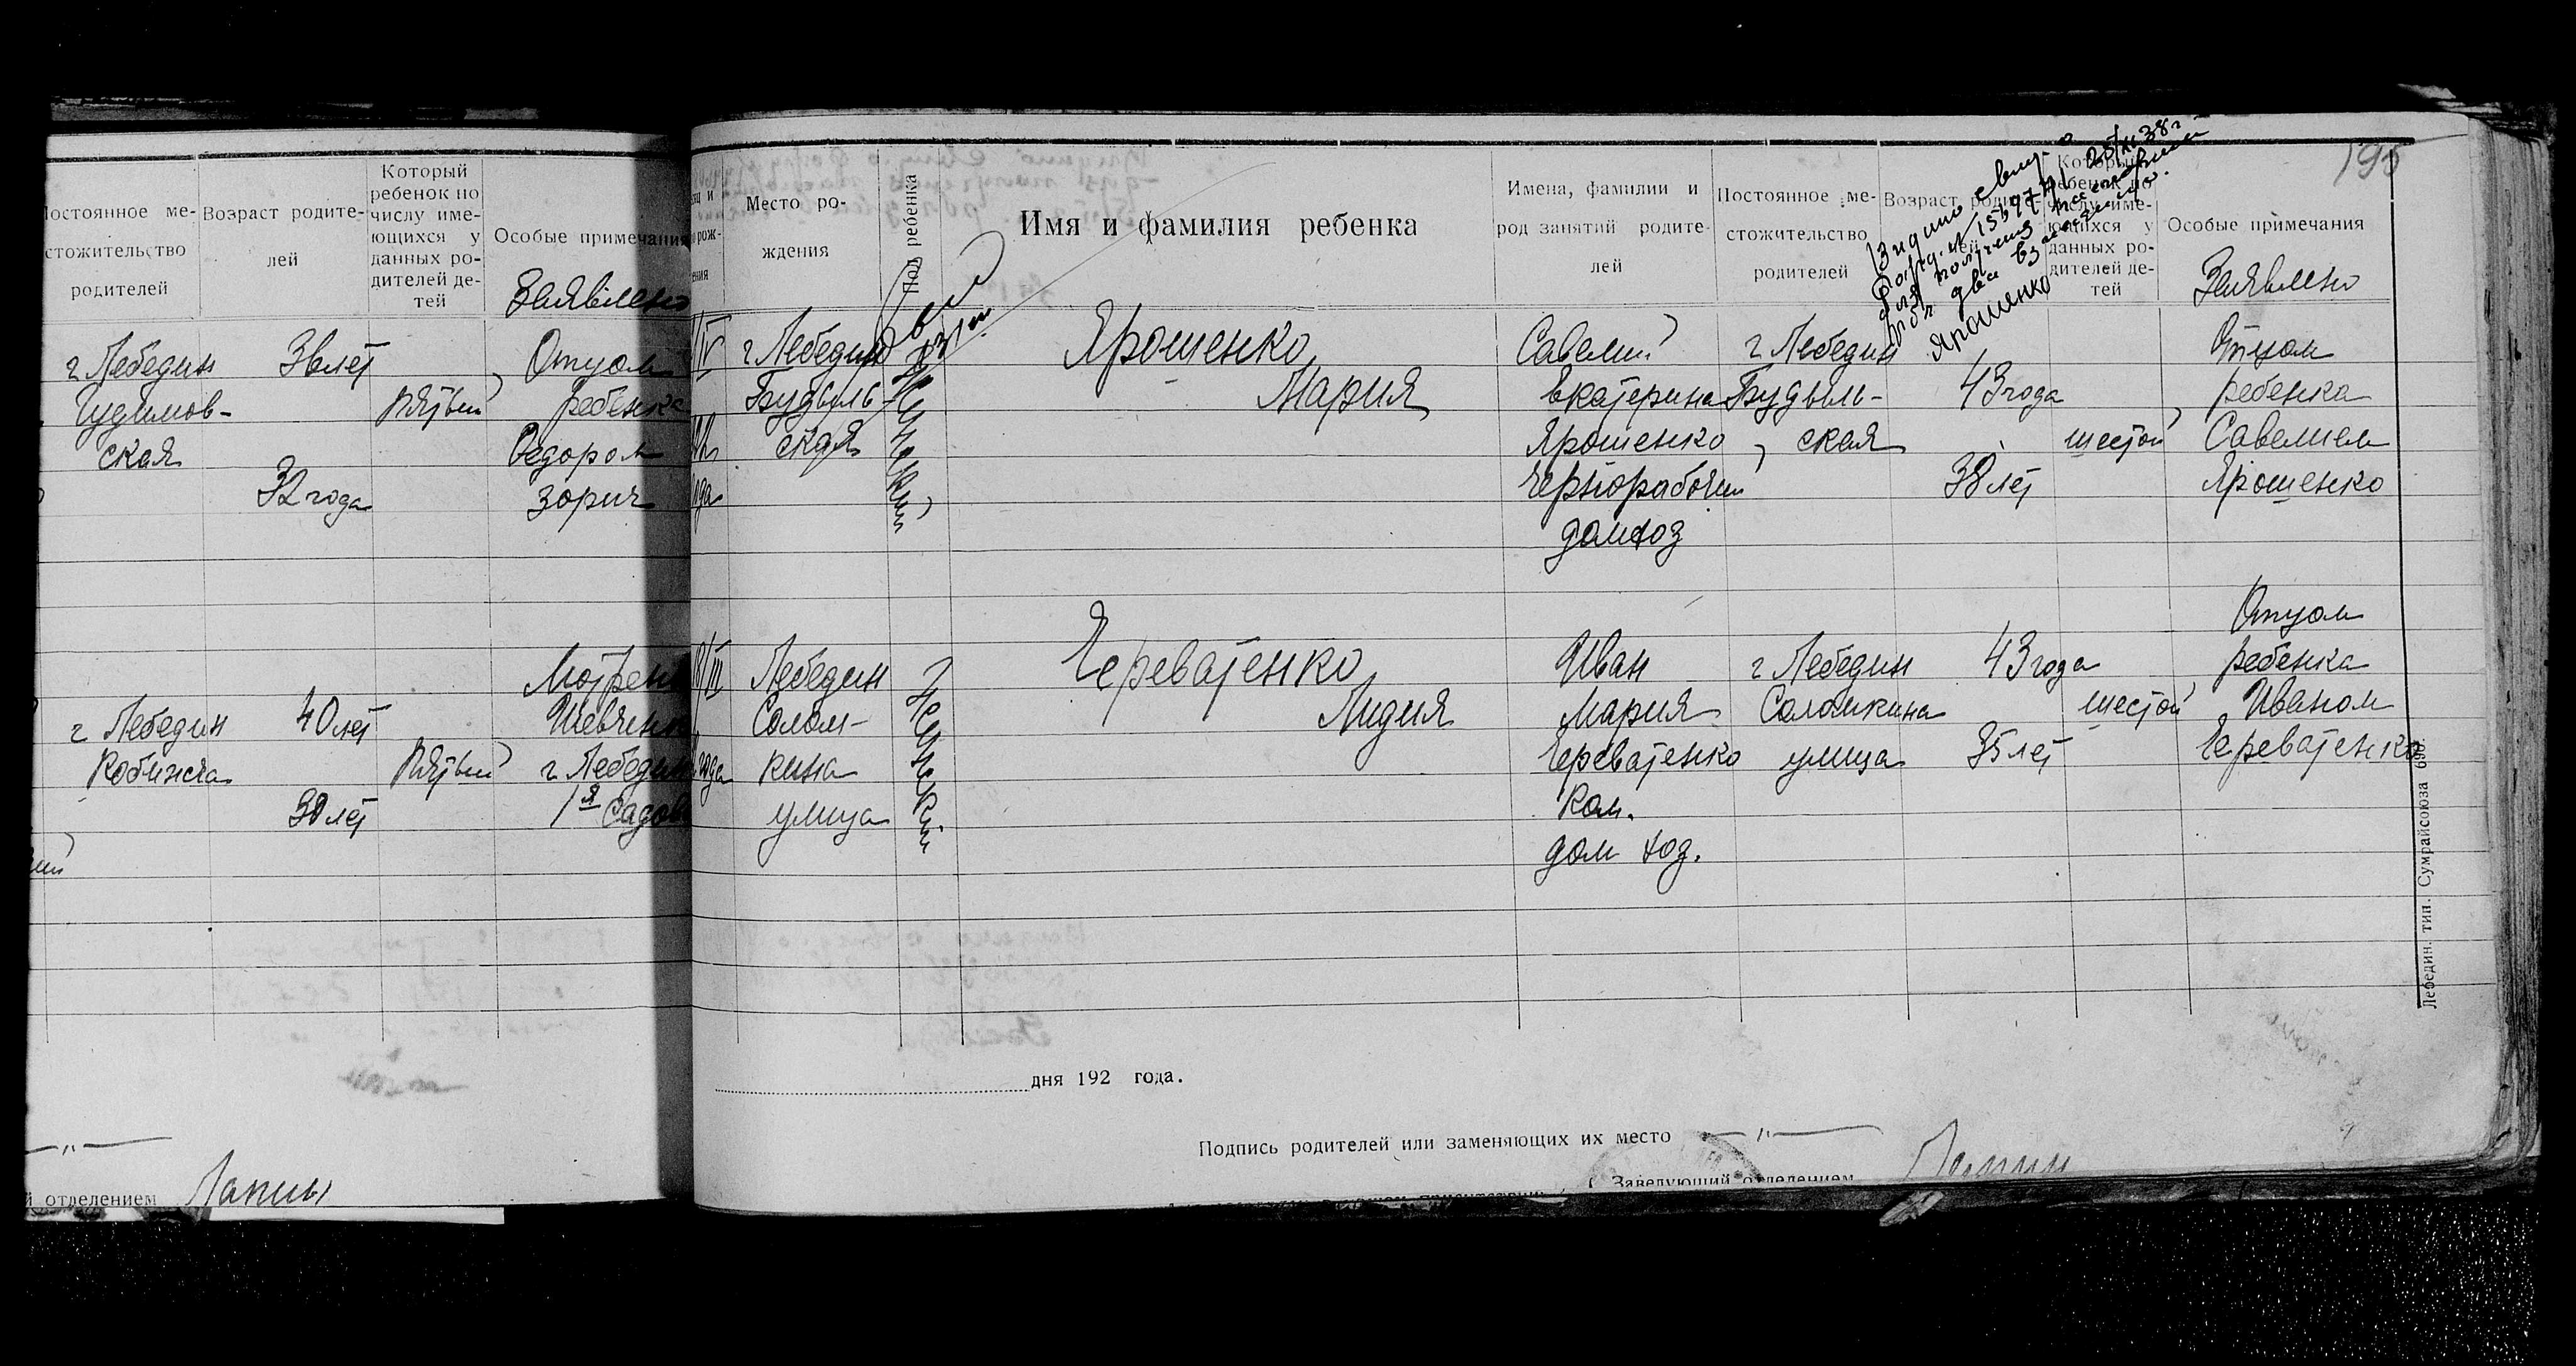 Постоянное ме-
стожительство
родителей
Возраст родите-
лей
Который
ребенок по
числу име-
ющихся у
данных ро-
дителей де-
тей
Особые примечания
Заявлено
г Лебедин
Гудимов-
ская
32 года
Пятый
Отцом
ребенка
Федором
Зорич
г Лебедин
40 лет
Пятый
Шевченко
г. Лебедин
1я Садов
отделением
Лапин
Место ро-
ждения
Пол ребенка
Имя и фамилия ребенка
Имена, фамилии и
род занятий родите-
лей
Постоянное ме-
стожительство
родителей
Возраст родите-
лей
Который
ребенок по
числу име-
ющихся у
данных ро-
дителей де-
тей
Особые примечания
Заявлено
195
Ярошенко
г. Лебедин
Будыль-
ская
Женский
Ярошенко
Мария
Савелий
Екатерина
Ярошенко
Чернорабочий
домхоз
г Лебедин
Будыль-
ская
43 года
38 лет
шестой
Отцом
ребенка
Савелием
Ярошенко
Лебедин
Солом-
кина
улица
Женский
Череватенко
Лидия
Иван
Мария
Череватенко
дом хоз.
г Лебедин
Соломкина
улица
43 года
35 лет
шестой
Отцом
ребенка
Иваном
Череватенко
дня 192 года.
Подпись родителей или заменяющих их место
Заведующий отделением
Лапин
Лебедин. тип. Сумрайсоюза 696.